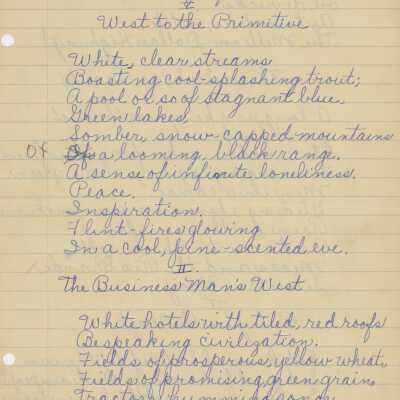 V
West to the Primitive
White, clear streams
Boasting cool-splashing trout;
A pool or so of stagnant blue,
Green lakes,
Somber, snow-capped mountains
Or a looming, black range.
A sense of infinite loneliness.
Peace.
Inspiration.
Flint-fires glowing
In a cool, pine-scented eve.
II.
The Business Man's West
White hotels with tiled, red roofs
Bespeaking civilization.
Fields of prosperous, yellow wheat,
Fields of promising, green grain,
Tractors humming songs